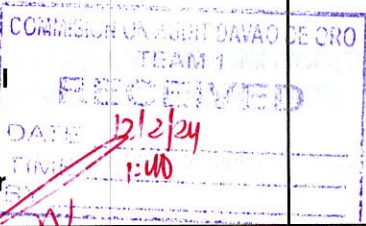 COMMISSION ON AUDIT DAVAO DE ORO
TEAM 1
RECEIVED
DATE 12/2/24
TIME 1:40
BY